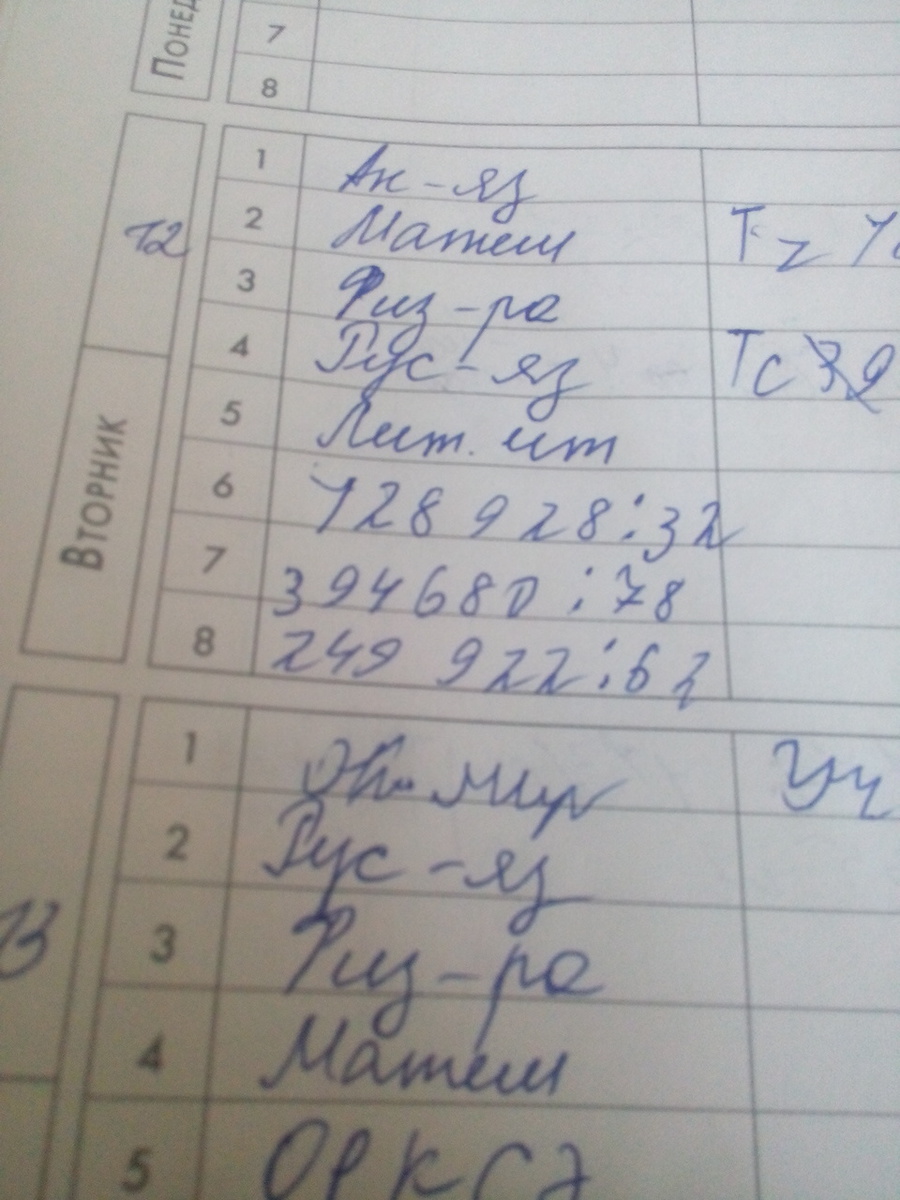 Понед
7
8
12
Вторник
1 Ан-яз
2 Матем Т с
3 Физ-ра
4 Рус-яз Тс 39
5 Лит. чт
6 128 928:32
7 394680:78
8 249 922:62
13
1 Ок. мир Уч
2 Рус-яз
3 Физ-ра
4 Матем
5 ОРКСЭ